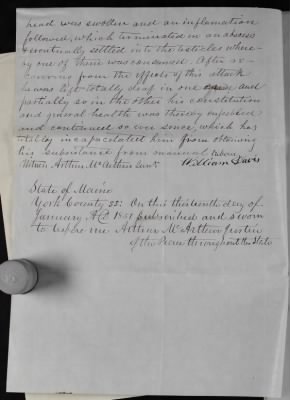 head was swollen and an inflamation
followed, which terminated in an abscess
& eventually settled into the testicles where-
by one of them was consumed. After re-
covering from the effects of this attack
he was left totally deaf in one ear and
partially so in the other his constitution
and general health was thereby enfeebled
and continued so ever since, which has
totally incapacitated him from obtaining
his subsistance from manual labor.
Witness Arthur McArthur William Davis
State of Maine
York County SS: On this thirteenth day of
January A.D. 1851 subscribed and sworn
to before me Arthur McArthur Justice
of the Peace throughout the State